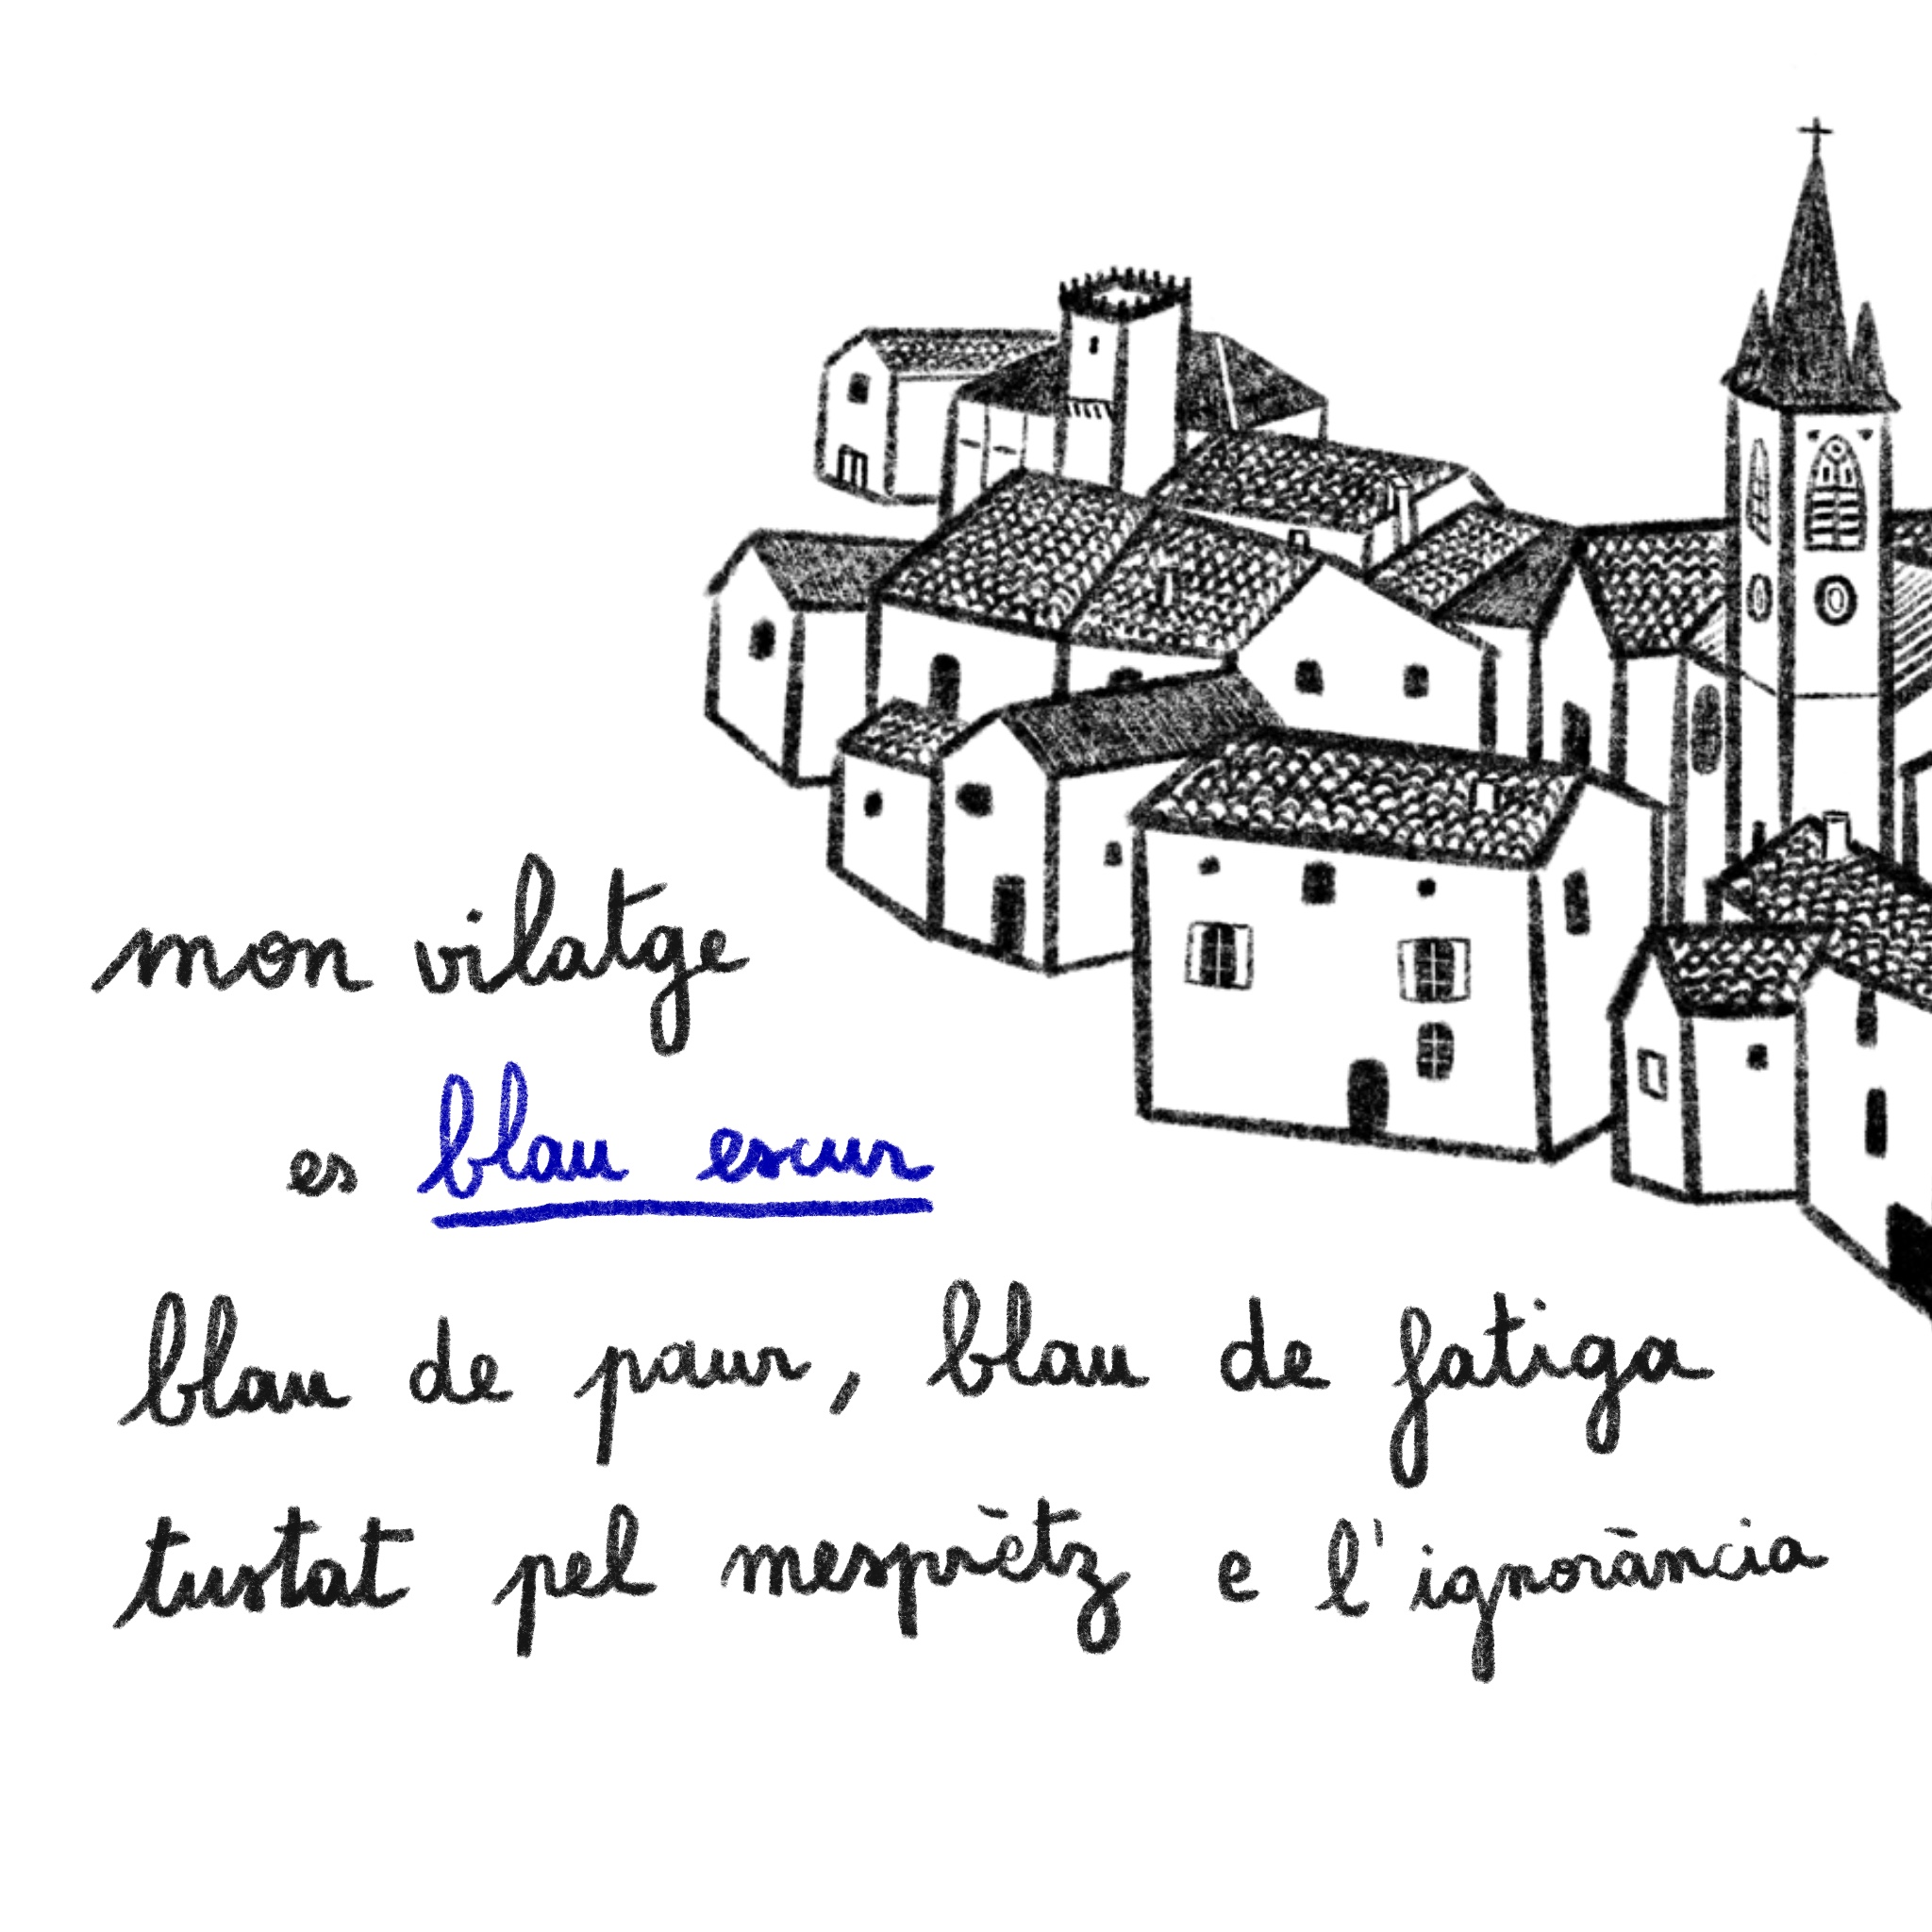 mon vilatge
es blau escur
blau de paur, blau de fatiga
tustat pel mesprètz e l'ignorància